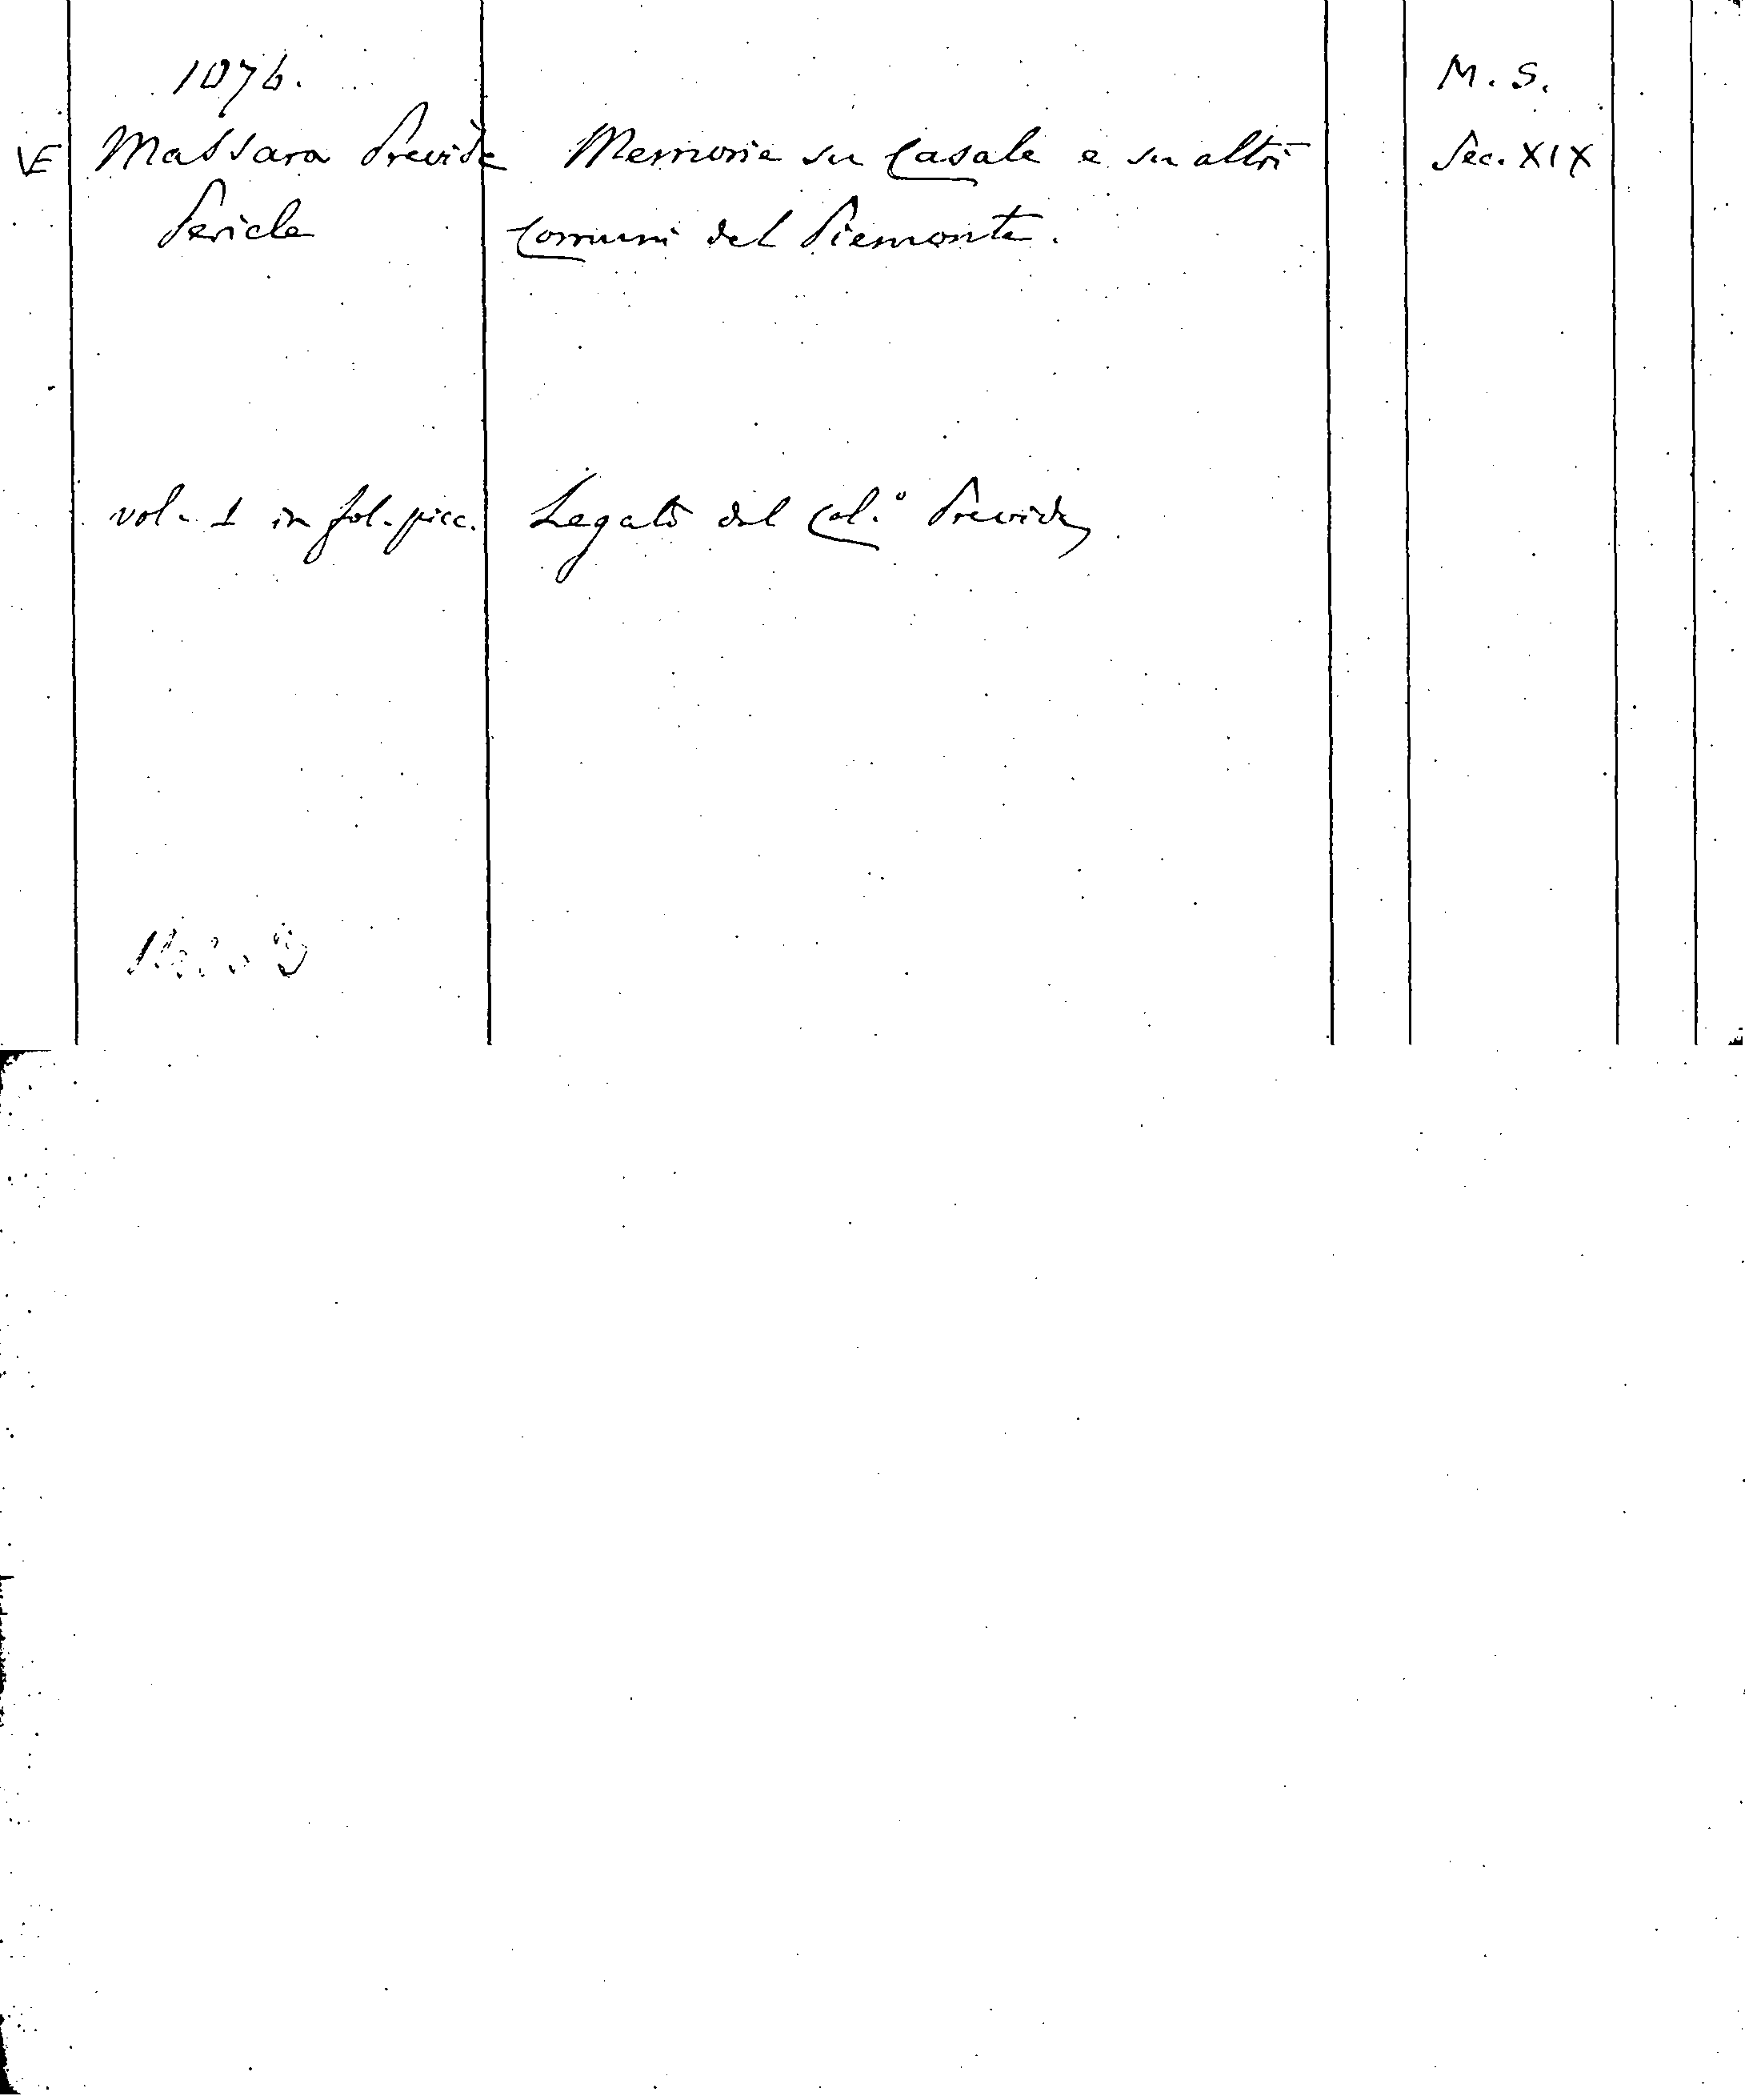 1076.
M. S.
VE Massara Previde Memorie su Casale e su altri Sec. XIX
Pericle comuni del Piemonte.
vol. 1 in fol. picc. Legato del Col.° Previde